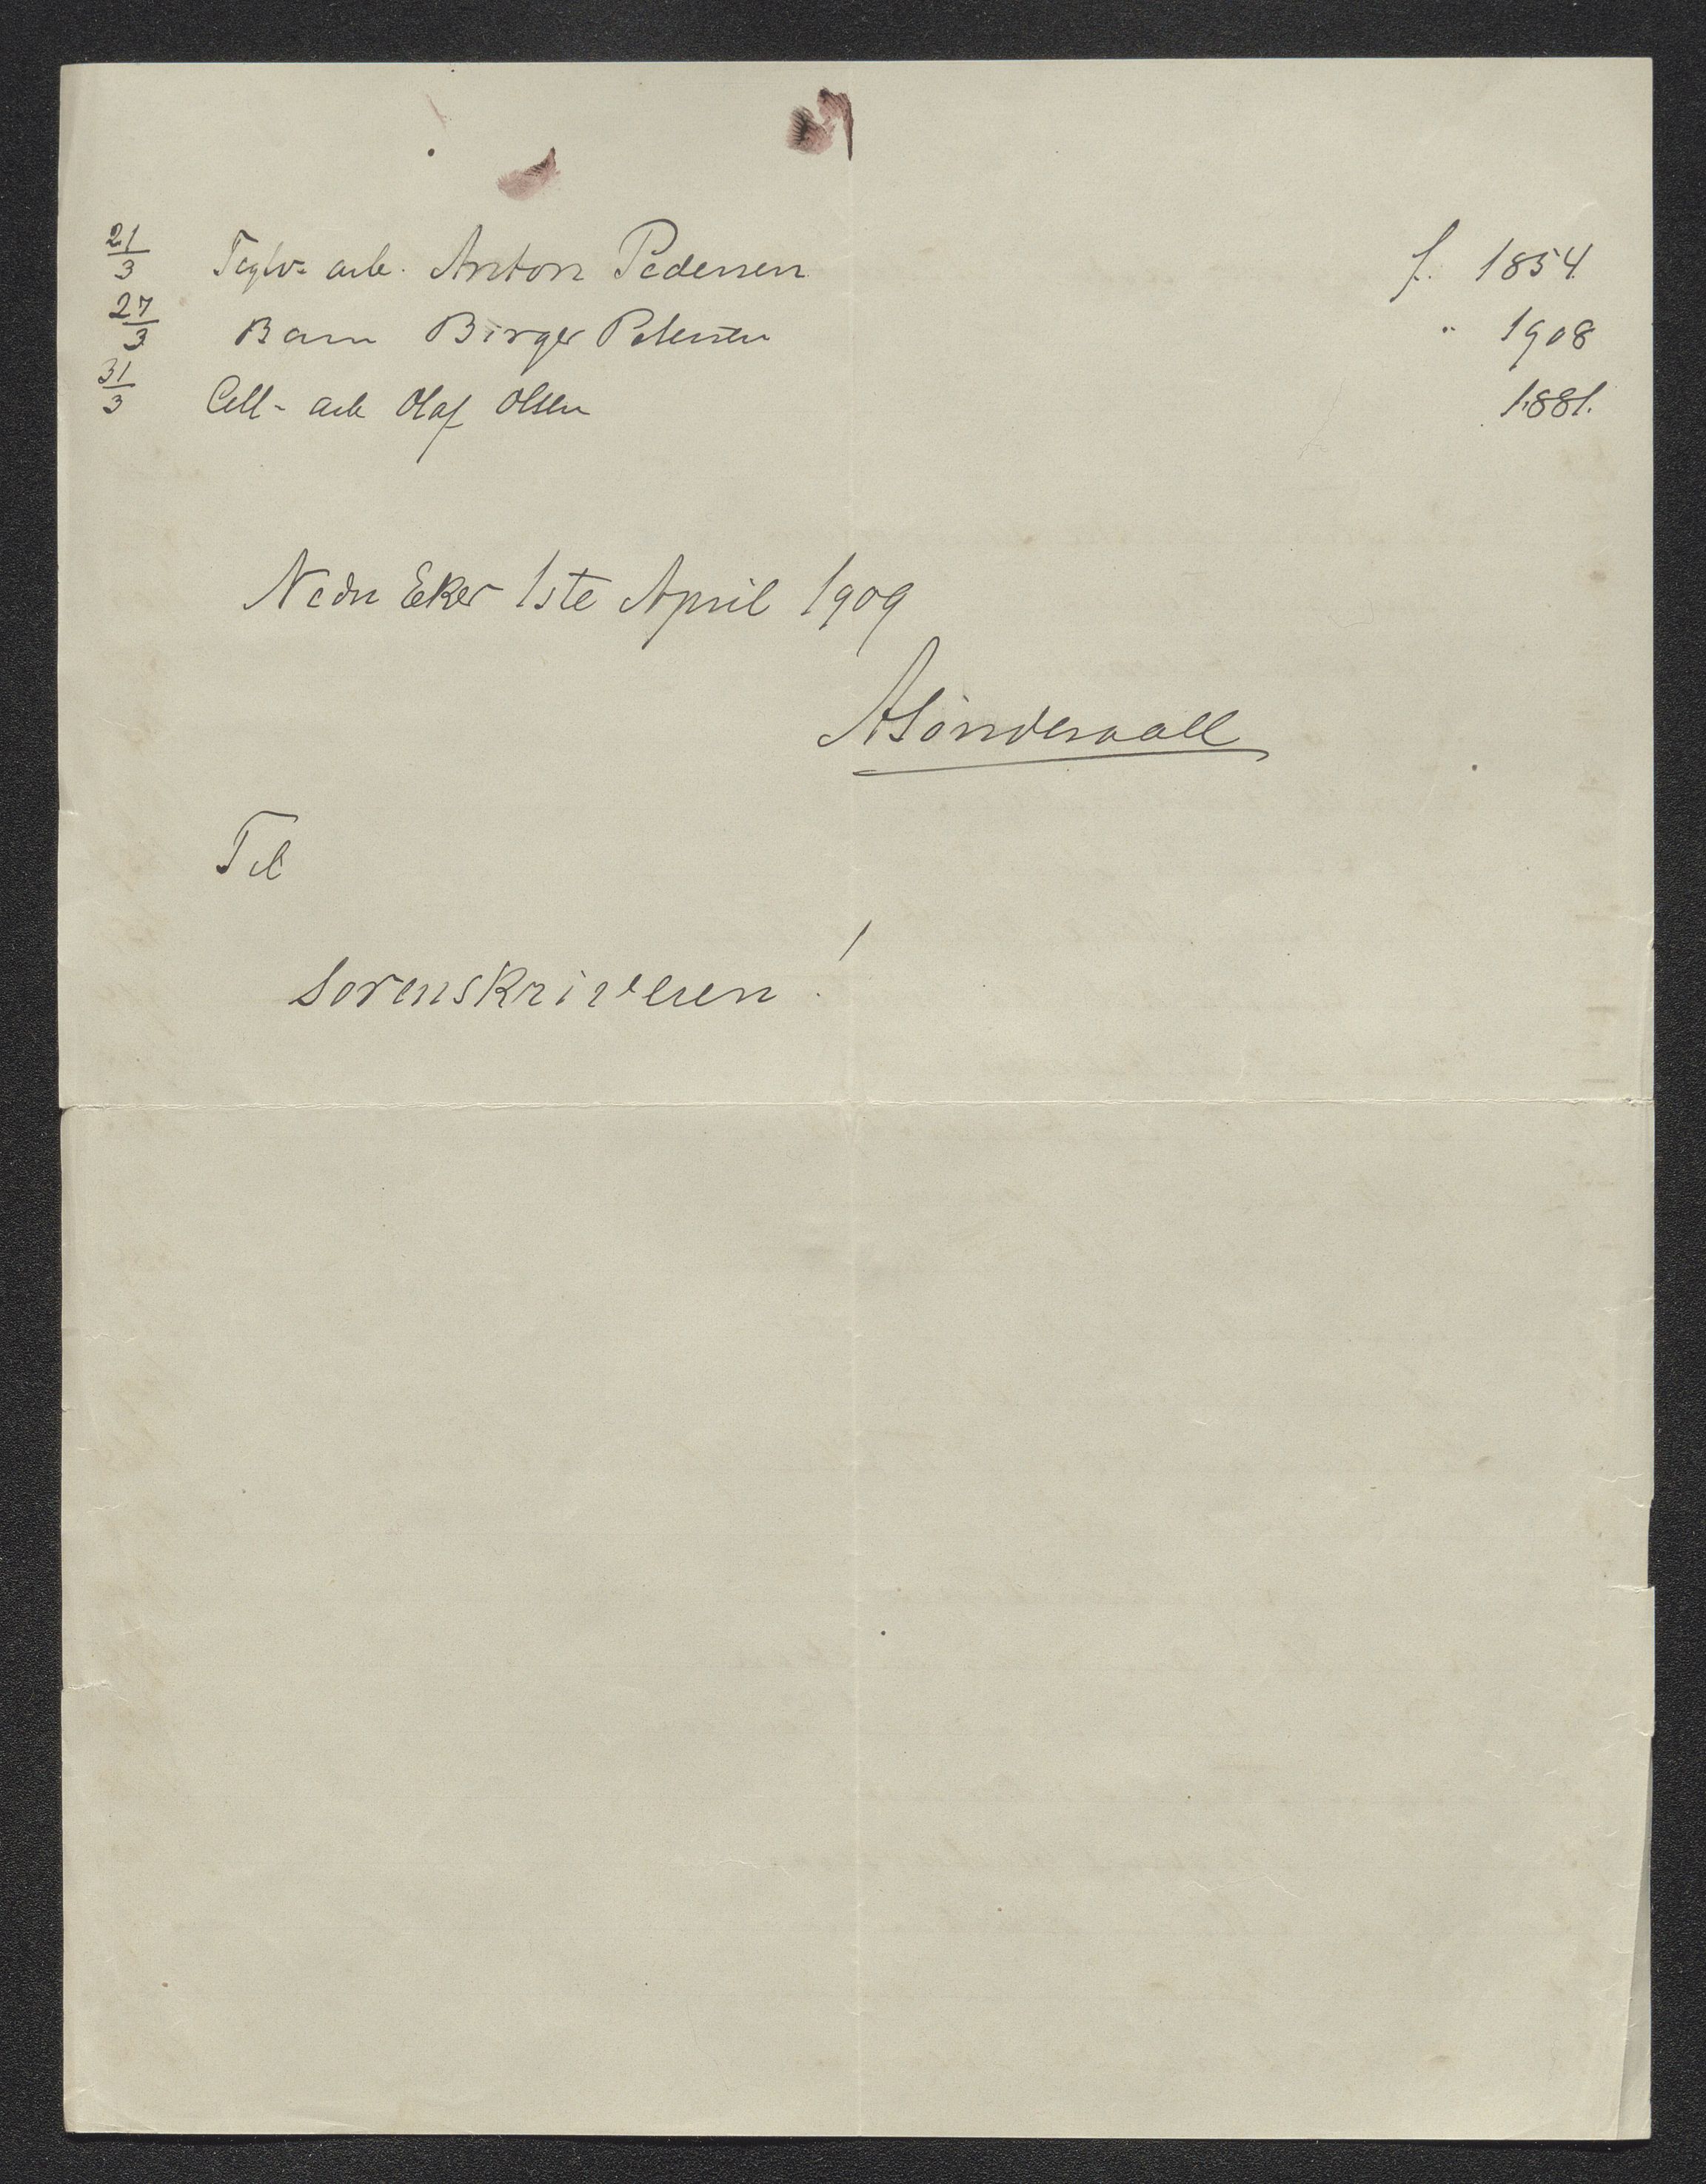 21/3 Teglv= arb. Anton Pedersen f. 1854
27/3 Barn Birger Petersen " 1908
31/3 Cell- arb Olaf Olsen 1881.
Nedr Eker 1ste April 1909
ASønderaall
Til
Sorenskriveren!